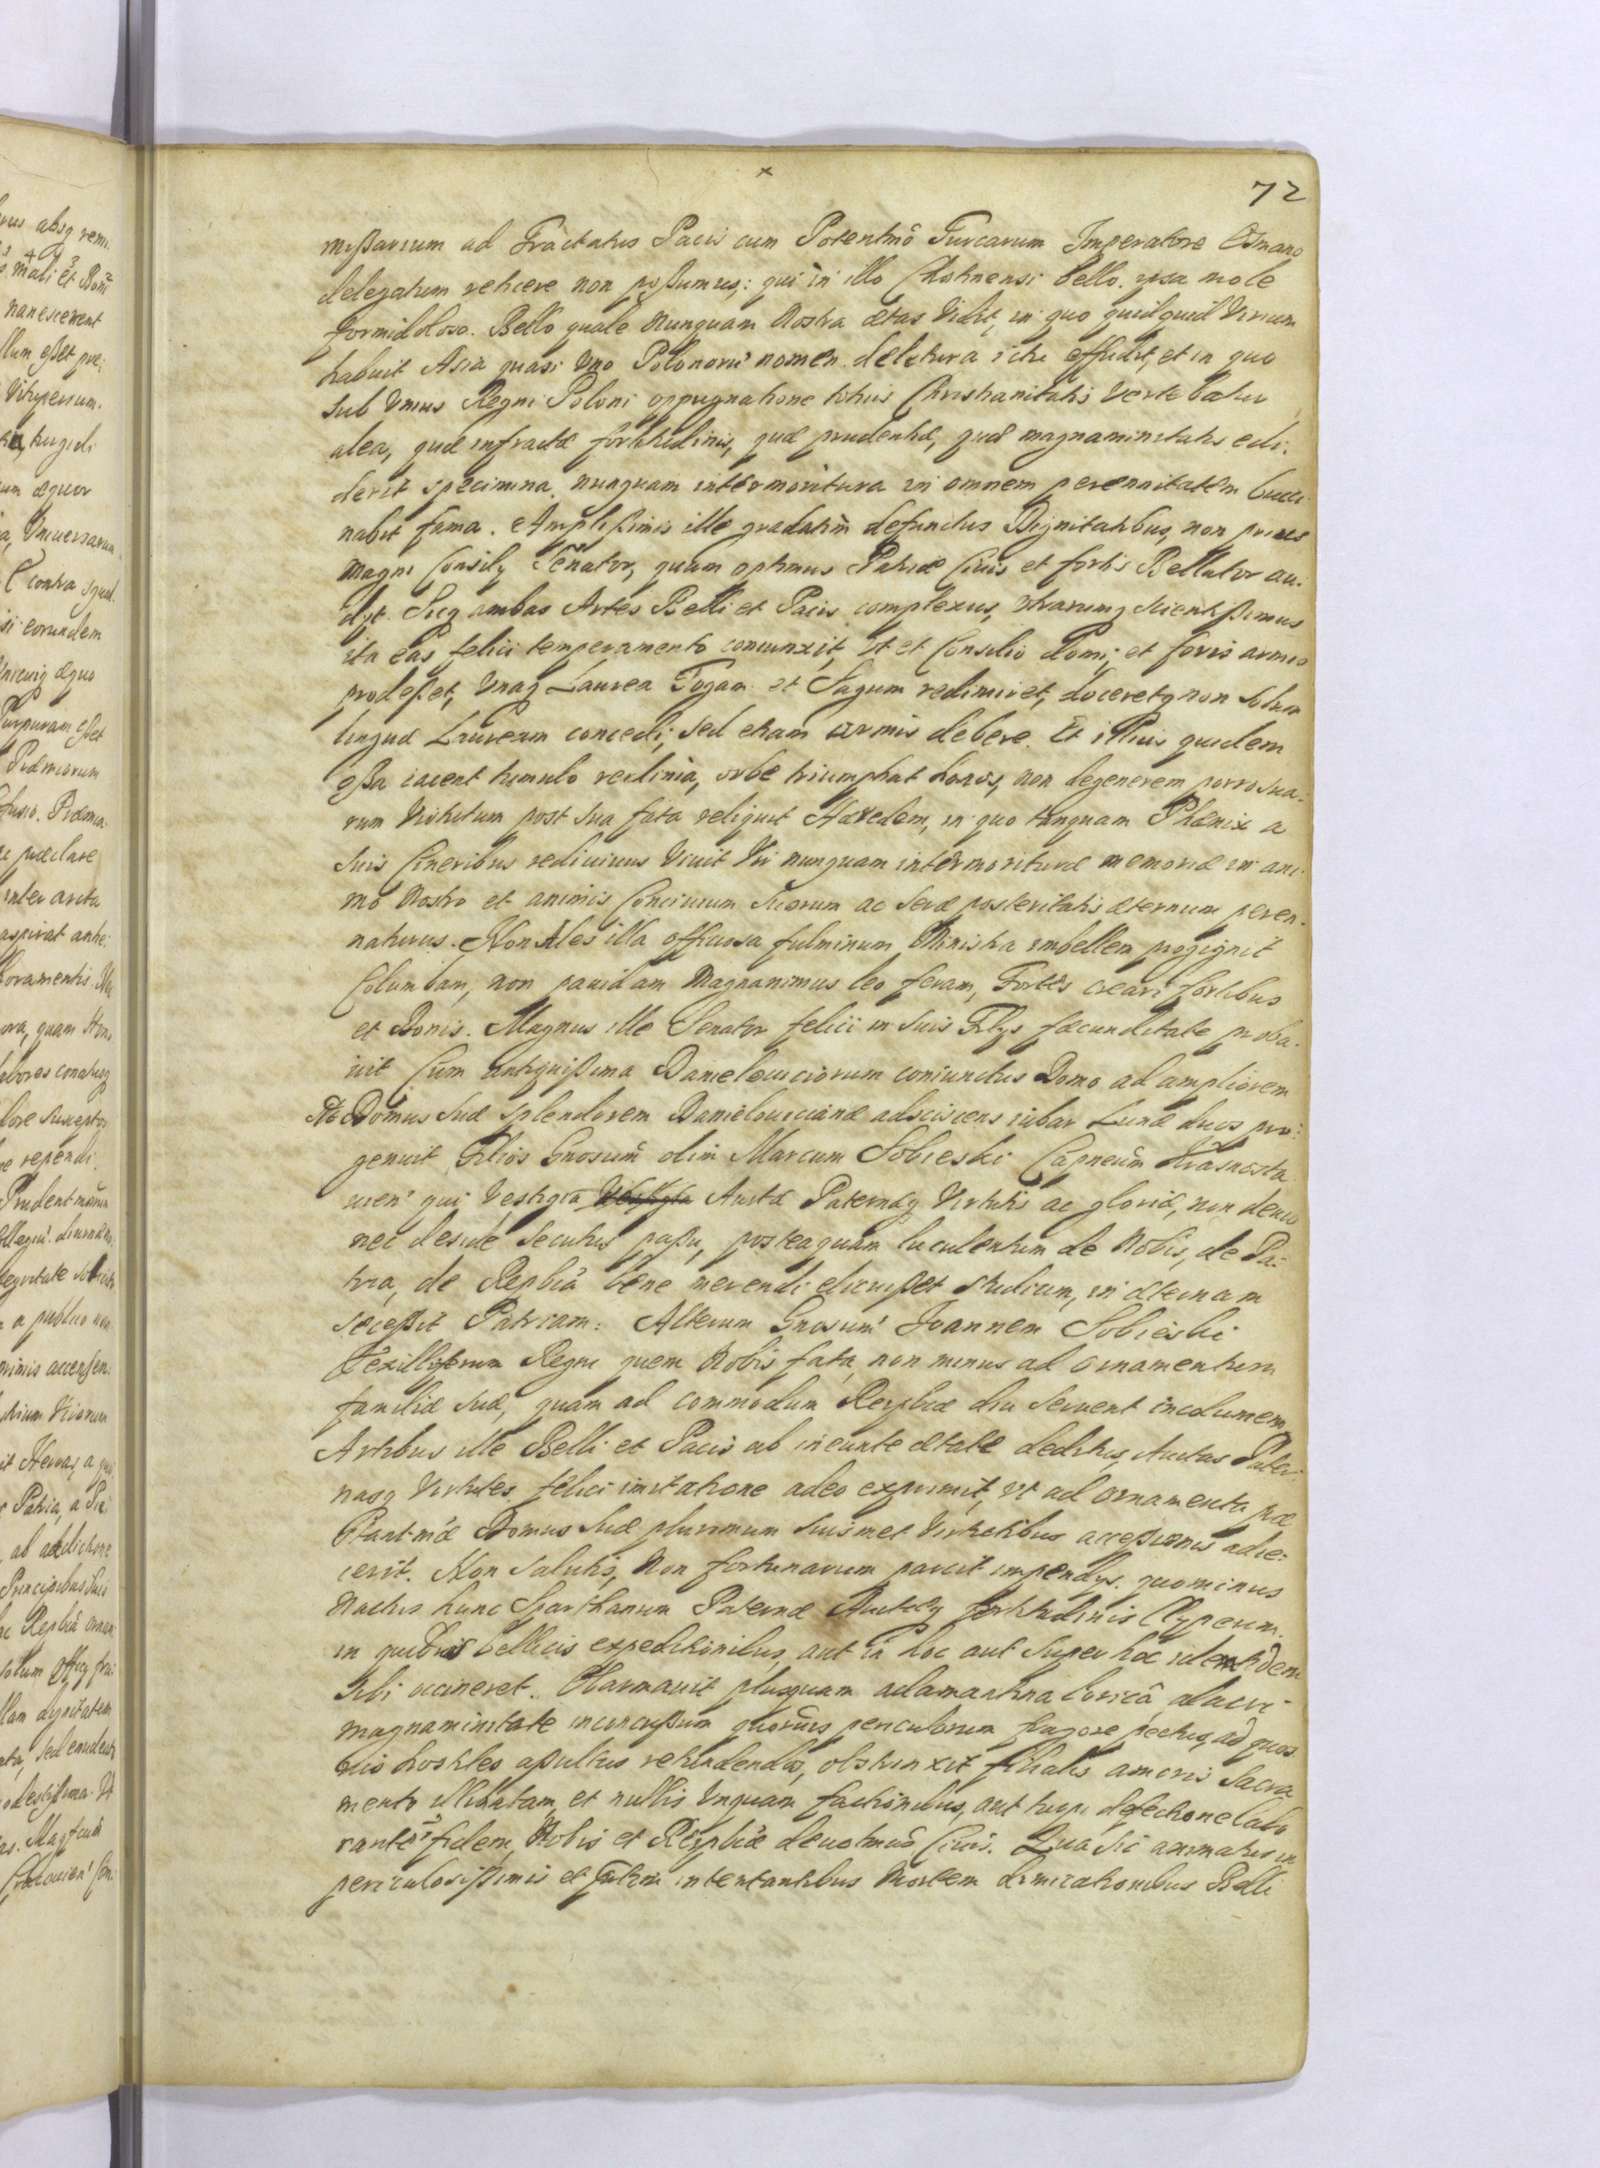 72
mißarium ad Tractatus Pacis cum Potentmô Turcarum Imperatore Osmano
delegatum reticere non poßumus: qui in illo Chotinensi bello ipsa mole
formidoloso. Bello quale Nunquam Nostra ætas Vidit, in quo quidquid Virium
habuit Asia quasi Vno Polonorũ nomen deletura ictu effudit, et in quo
sub Vnius Regni Poloni oppugnatione totius Christianitatis Vertebatur
alea, quæ infractæ fortitudinis, quæ prudentiæ, quæ magnaminitatis edi-
derit specimina, nunquam intermoritura in omnem perennitatem bucci
nabit fama. Amplißimis ille gradatim defunctus Dignitatibus, non prius
Magni Consily Senator, quam optimus Patriæ Ciuis et fortis Bellator au-
dyt. Sicq ambas Artes Belli et Pacis complexus, vtrarumq scientißimus
ita eas felici temperamento coniunxit, vt et Consilio domi, et foris armis
prodeßet, Vnaq Laurea Togam et Sagum redimiret, doceretq non solum
linguæ Lauream concedi, sed etiam armis debere. Et illius quidem
oßa iacent tumulo reclinia, orbe triumphat honos, non degenerem porro sua-
rum Virtutum post sua fata reliquit Hæredem, in quo tanquam Phænix a
suis Cineribus rediuiuus Viuit Vir nunquam intermorituræ memoriæ in ani-
mo Nostro et animis Conciuium suorum ac seræ posteritatis æternum peren-
naturus. Non Ales illa officiosa fulminum Ministra imbellem progignit
Columbam, non pauidam Magnanimus leo feram, Fortes creari fortibus
et Bonis. Magnus ille Senator felici in suis Filys fæcunditate proba-
uit Cum antiquißima Danielouiciorum coniunctus Domo ad ampliorem
Domus suæ splendorem Danielouicianæ adsciscens iubar Lunæ duos pro-
genuit Filios Gnosum olim Marcum Sobieski Capneum Krasnosta
uien' qui Vestigia Vestigia Auitæ Paternæq Virtutis ac gloriæ, non deuio
nec deside secutus paßu, posteaquam luculentum de Nobis, de Pa-
tria, de Replicâ bene merendi edidißet studium, in æternam
seceßit Patriam. Alterum Gnosum Joannem Sobieski
Vexilliferum Regni quem Nobis fata non minus ad ornamentum
familiæ suæ, quam ad commodum Reiplicæ diu seruent incolumem,
Artibus ille Belli et Pacis ab ineunte ætate deditus, Auitas Pater-
nasq Virtutes felici imitatione adeo expressit, vt ad ornamenta præ
stantmæ Domus suæ plurimum suismet Virtutibus acceßionis adie-
cerit. Non salutis, Non fortunarum parcit impendys, quominus
Nactus hunc Sparthanum Paternæ Auitæq fortitudinis Clypeum
in quibuis bellicis expeditionibus, aut in hoc aut super hoc identidem
sibi occineret. Obarmauit plusquam adamantina loricâ alacri
magnaminitate inconcußum quoruuis periculorum fragore pectus, ad quos
uis hostiles aßultus retundendos, obstrinxit filialis amoris Sacra
mento illibatam, et nullis Vnquam factionibus, aut turpi defectione labo
rantẽ fidem, Nobis et Reiplicæ deuotmus Ciuis. Qua sic animatus in
periculosißimis et intentantibus Mortem dimicationibus Belli